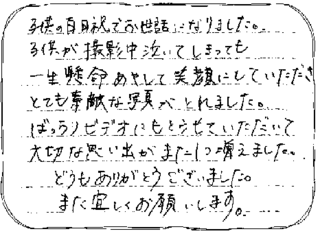 子供の百日祝でお世話になりました。
子供が撮影中泣いてしまっても
一生懸命あやして笑顔にしていただき
とても素敵な写真がとれました。
ばっうりビデオにもとらせていただいて
大切な思い出がまた1つ増えました。
どうもありがとうございました。
また宜しくお願いします。